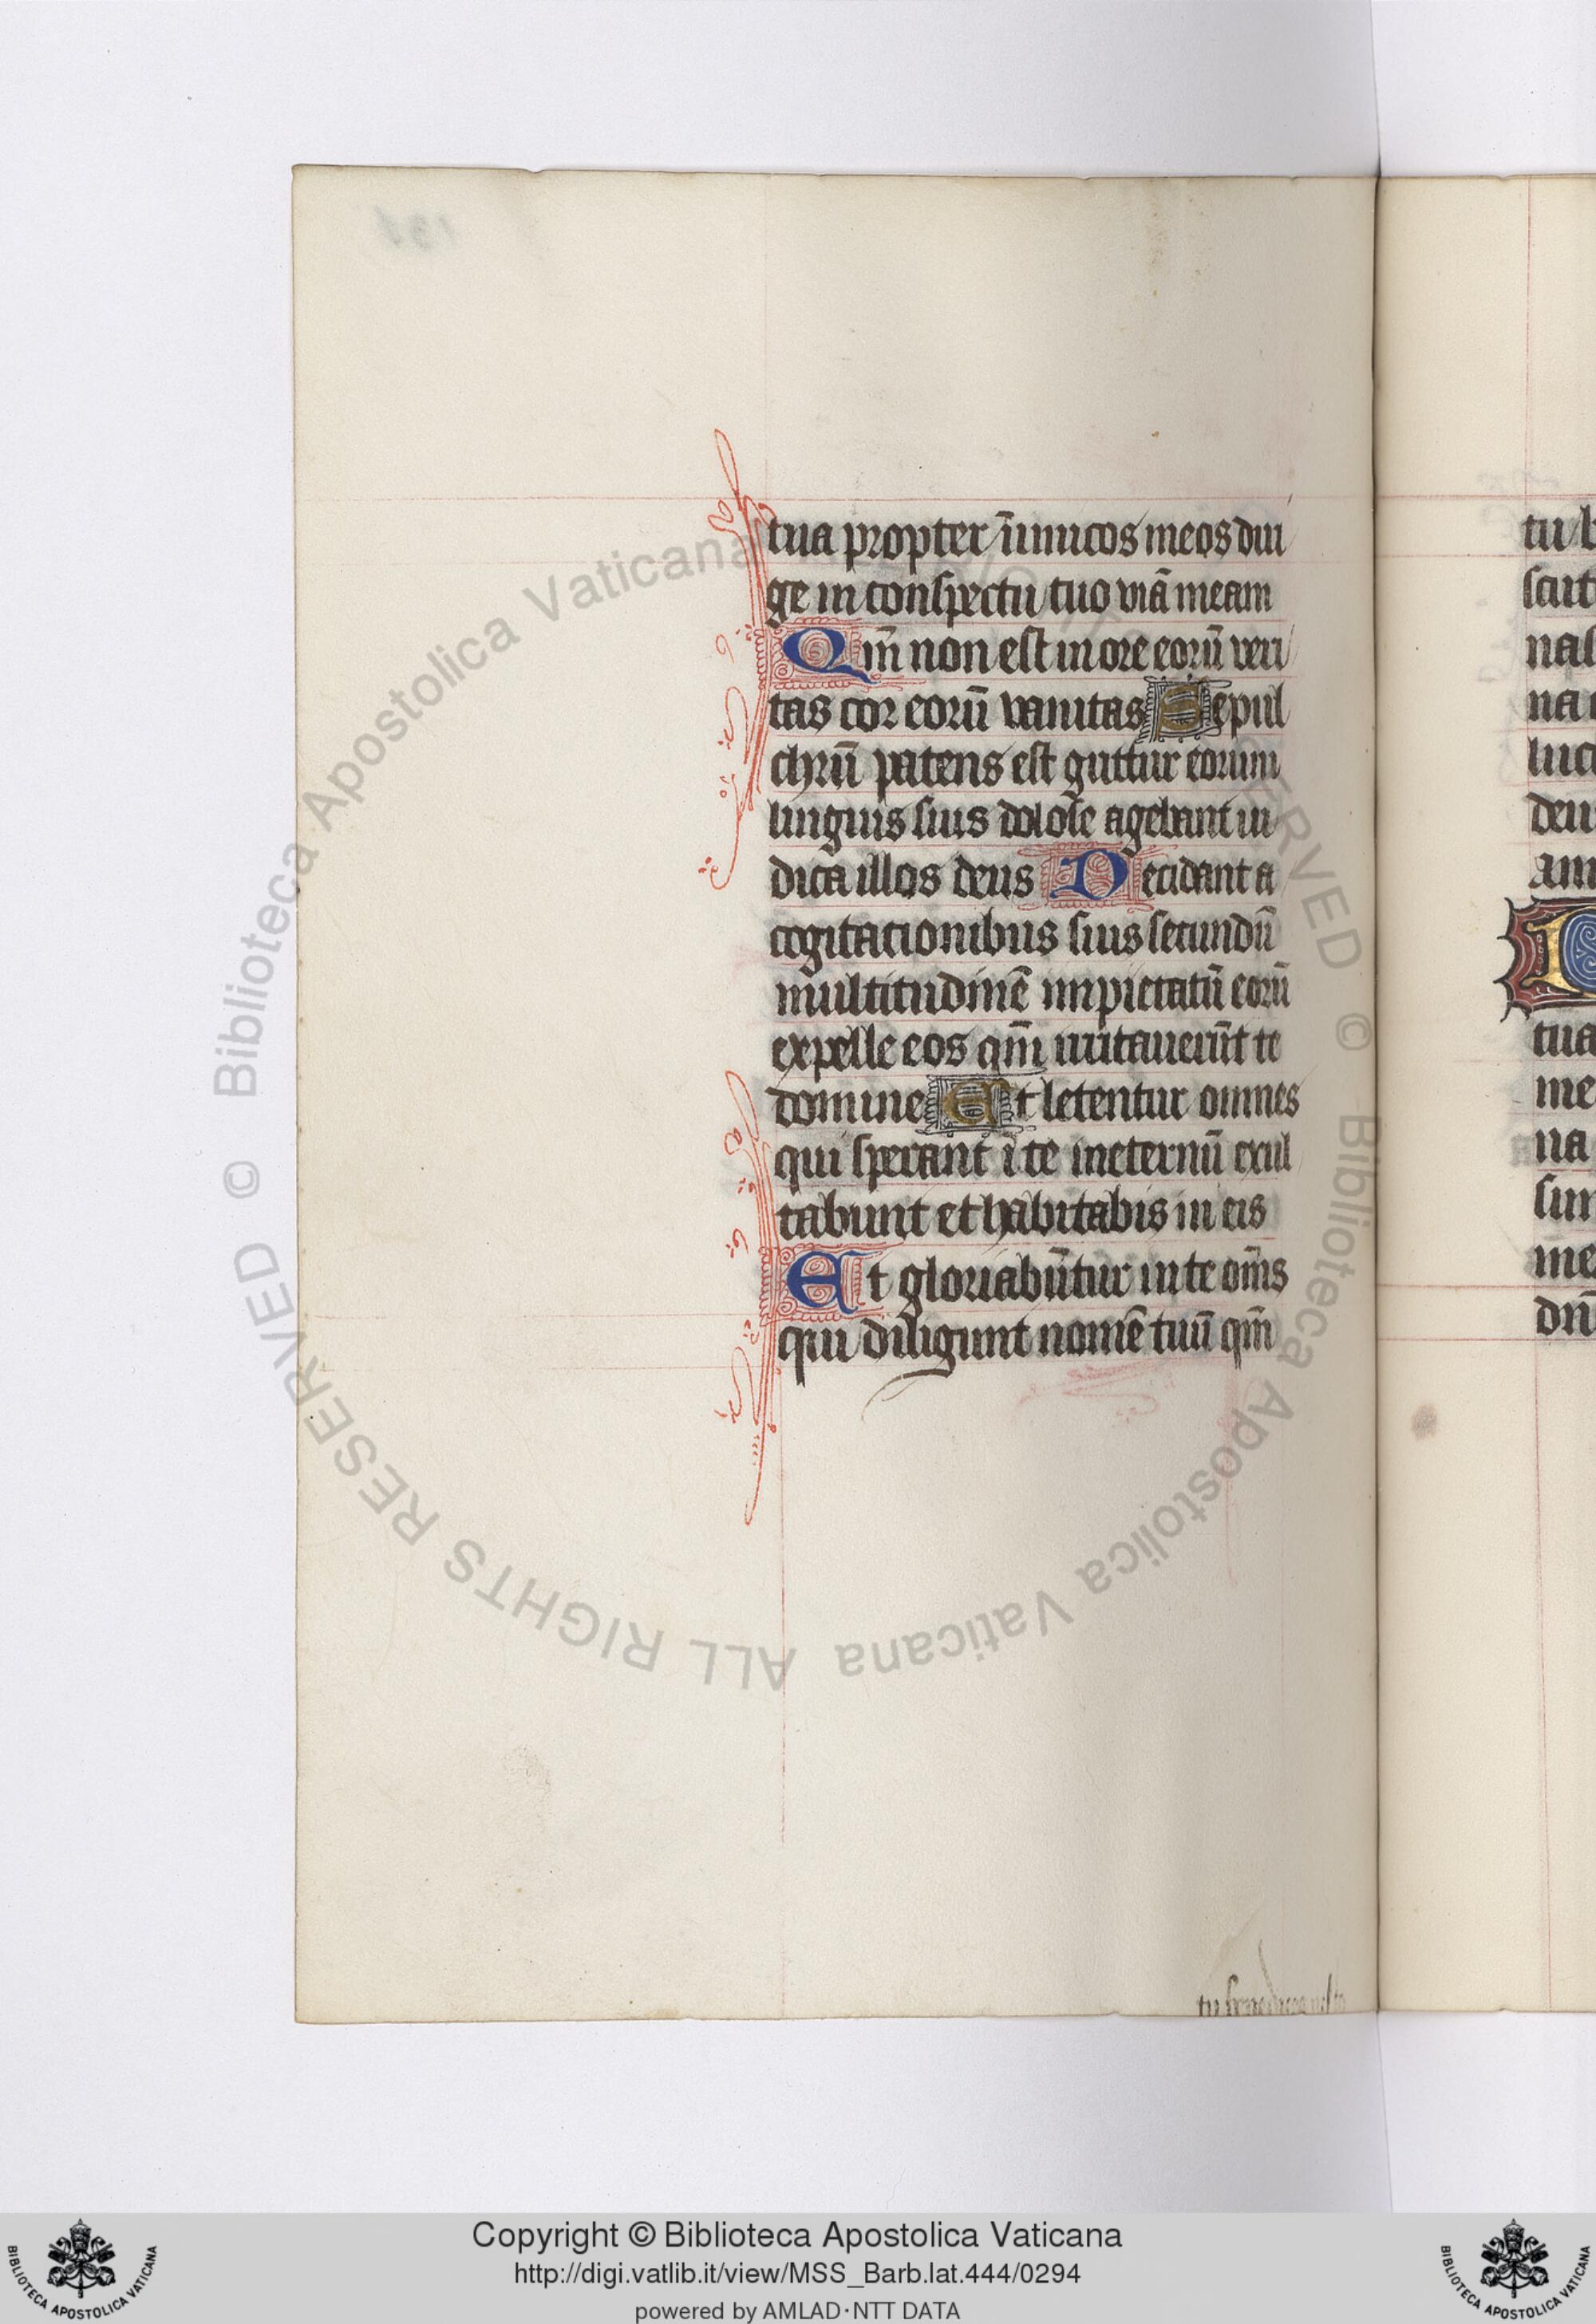 tua propter īimicos meos diri
ge in conspectu tuo viā meam
Qm̄ non est in ore eorū veri
tas cor eorū vanitas Sepul
chrū patens est guttur eorum
linguis suis dolose agebant iu
dica illos deus Decidant a
cogitationibus suis secundū
multitudinē impietatū eorū
expelle eos qm̄ irritauerūt te
domine Et letentur omnes
qui sperant ī te ineternū exul
tabunt et habitabis in eis
Et gloriabūtur in te om̄s
qui diligunt nomē tuū qm̄
tu
tu b
scut
nas
na
luc
deu
am
tua
me
na
sin
me
dn̄
Biblioteca Apostolica Vaticana
ALL RIGHTS RESERVED ©
Biblioteca Apostolica Vaticana
ALL RIGHTS RESERVED ©
Copyright © Biblioteca Apostolica Vaticana
http://digi.vatlib.it/view/MSS_Barb.lat.444/0294
powered by AMLAD·NTT DATA
BIBLIOTECA APOSTOLICA VATICANA
BIBLIOTECA APOSTOLICA VATICANA